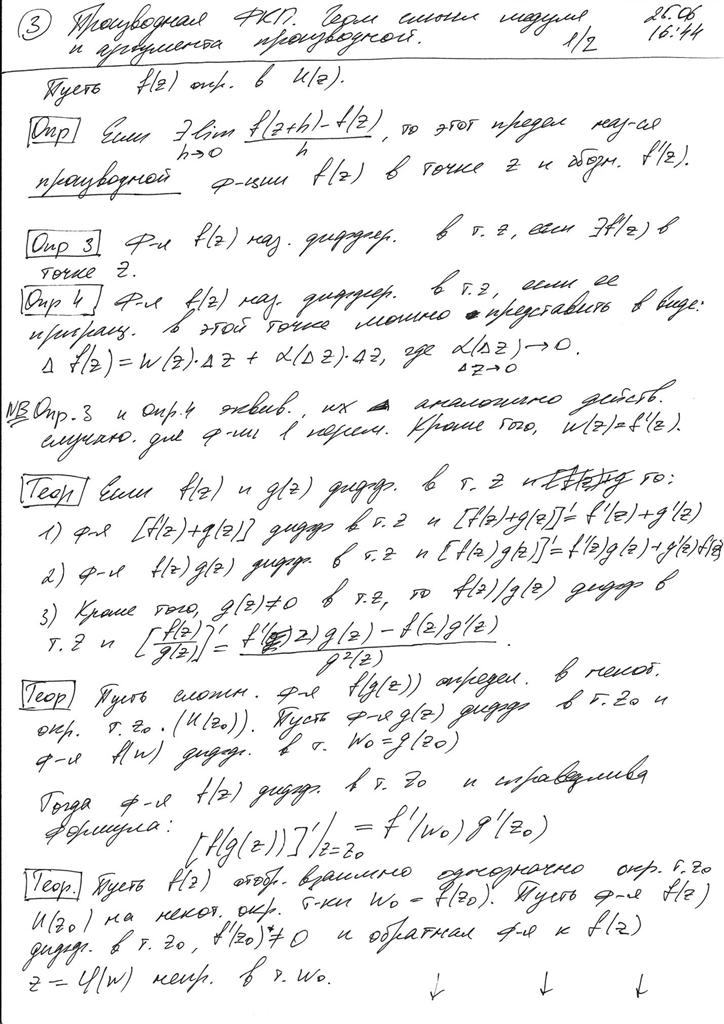 ③ Производная ФКП. Геом смысл модуля 26.06
и аргумента производной. 1/2 16:44
Пусть f(z) опр. в U(z).
Опр Если ∃ lim h→0 (f(z+h)-f(z))/h, то этот предел наз-ся
производной ф-ции f(z) в точке z и обозн. f'(z).
Опр 3 Ф-я f(z) наз. диффер. в т. z, если ∃f'(z) в
точке z.
Опр 4 Ф-я f(z) наз. диффер. в т.z, если ее
приращ. в этой точке можно представить в виде:
Δ f(z) = W(z)·Δz + α(Δz)·Δz, где α(Δz) → 0. Δz→0
NB Опр.3 и опр.4 эквив., их аналогично действ.
случаю для ф-ии 1 перем. Кроме того, w(z)=f'(z).
Теор Если f(z) и g(z) дифф. в т. z то:
1) ф-я [f(z)+g(z)] дифф в т.z и [f(z)+g(z)]'=f'(z)+g'(z)
2) Ф-я f(z)g(z) дифф. в т.z и [f(z)g(z)]'=f'(z)g(z)+g'(z)f(z)
3) Кроме того, g(z)≠0 в т.z, то f(z)/g(z) дифф в
т. z и [f(z)/g(z)]' = (f'(z)g(z) - f(z)g'(z))/g²(z).
Теор Пусть сложн. ф-я f(g(z)) определ. в некот.
окр. т. z₀. (U(z₀)). Пусть ф-я g(z) дифф в т. z₀ и
ф-я f(w) дифф. в т. W₀=g(z₀)
Тогда ф-я f(z) дифф. в т. z₀ и справедлива
формула: [f(g(z))]'|z=z₀ = f'(w₀) g'(z₀)
Теор. Пусть f(z) отобр. взаимно однозначно окр. т.z₀
U(z₀) на некот. окр. т-ки w₀ = f(z₀). Пусть ф-я f(z)
дифф. в т. z₀, f'(z₀) ≠ 0 и обратная ф-я к f(z)
z = φ(w) непр. в т. w₀. ↓ ↓ ↓